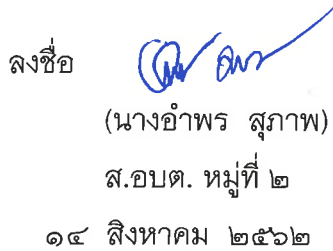 ลงชื่อ
(นางอำพร สุภาพ)
ส.อบต. หมู่ที่ ๒
๑๔ สิงหาคม ๒๕๖๒